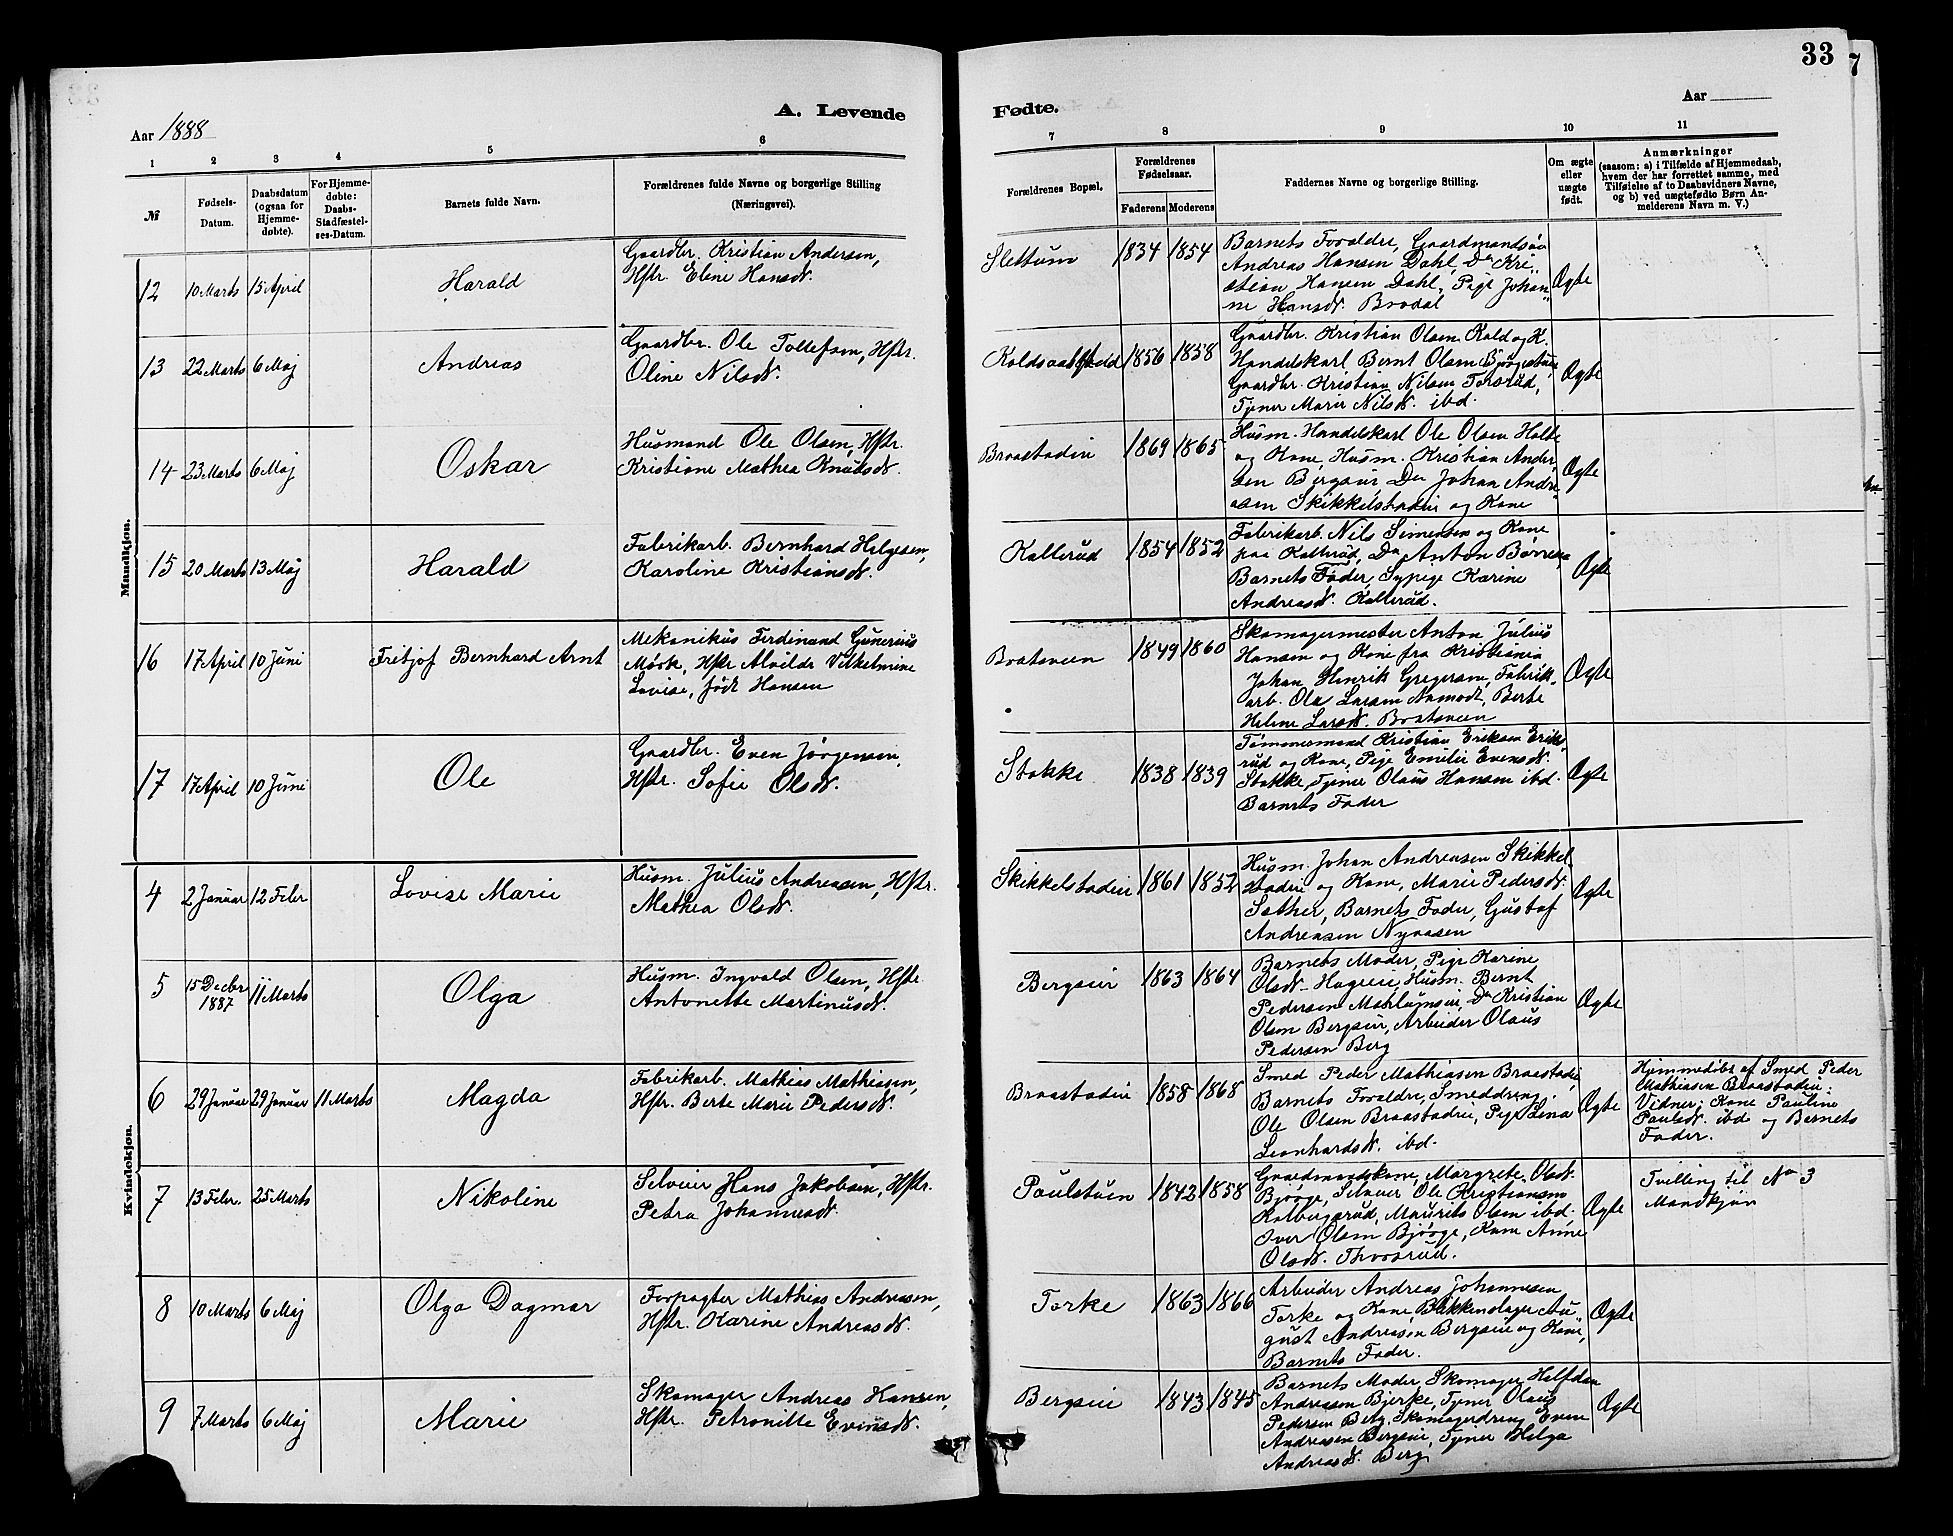 33
7
A. Levende
Fødte.
Aar 1888
Aar
1 2 3 4 5 6 7 8 9 10 11
№
Fødsels-
Datum.
Daabsdatum
(ogsaa for
Hjemme-
døbte).
For Hjemme-
døbte:
Daabs-
Stadfæstel-
ses-Datum.
Barnets fulde Navn.
Forældrenes fulde Navne og borgerlige Stilling
(Næringsvei).
Forældrenes Bopæl.
Forældrenes
Fødselsaar.
Faderens Moderens
Faddernes Navne og borgerlige Stilling.
Om ægte
eller
uægte
født.
Anmærkninger
(saasom: a) i Tilfælde af Hjemmedaab,
hvem der har forrettet samme, med
Tilføielse af to Daabsvidners Navne,
og b) ved uægtefødte Børn An-
melderens Navn m. V.)
Mandkjøn.
12 10 Marts 15 April Harald
Gaardbr. Kristian Andersen,
Hstr. Eline Hansd.
Slettum 1834 1854
Barnets Forældre, Gaardmandsøn
Andreas Hansen Dahl, Do Kri-
stian Hansen Dahl, Pige Johan-
ne Hansd. Brodal
Ægte
13 22 Marts 6 Maj Andreas
Gaardbr. Ole Tollefsen, Hstr.
Oline Nilsd.
1856 1858
Gaardbr. Kristian Olsen Kald og K.
Handelskarl Bernt Olsen Bjørgestuen
Gaardbr. Kristian Nilsen Torsrud,
Tjener Marie Nilsd. ibd.
Ægte
14 23 Marts 6 Maj Oskar
Husmand Ole Olsen, Hstr.
Kristiane Mathea Knudsd.
Braastadeie 1869 1865
Husm. Handelskarl Ole Olsen Holte
og Kone, Husm. Kristian Ander-
sen Bergseie Do Johan Andre-
asen Skikkelstadeie og Kone
Ægte
15 20 Marts 13 Maj Harald
Fabrikarb. Bernhard Helgesen,
Karoline Kristiansd.
Kallerud 1854 1852
Fabrikarb. Nils Simensen og Kone
paa Kallerud, Do Anton
Barnets Fader, Sypige Karine
Andreasd. Kallerud.
Ægte
16 17 April 10 Juni Fritjof Bernhard Arnt
Mekanikus Ferdinand Gunerius
Mørk, Hstr Alvilde Vilhelmine
Lovise, født Hansen
Braateveen 1849 1860
Skomagermester Anton Julius
Hansen og Kone fra Kristiania
Johan Henrik Gregersen, Fabrik-
arb. Ole Larsen Aamodt, Berte
Helene Larsd. Braateveen
Ægte
17 17 April 10 Juni Ole
Gaardbr. Even Jørgensen,
Hstr. Sofie Olsd.
Stokke 1838 1839
Tømmermand Kristian Eriksen Eriks-
rud og Kone, Pige Emilie Evensd.
Stokke, Tjener Olaus Hansen ibd.
Barnets Fader
Ægte
Kvindekjøn.
4 2 Januar 12 Febr Lovise Marie
Husm. Julius Andreasen, Hstr.
Mathea Olsd.
Skikkelstadeie 1861 1852
Husm. Johan Andreasen Skikkel-
stadeie og Kone, Marie Pedersd.
Sæther, Barnets Fader, Gustaf
Andreasen Nyaasen
Ægte
5 15 Decbr 1887 11 Marts Olga
Husm. Ingvald Olsen, Hstr.
Antonette Martinusd.
Bergseie 1863 1864
Barnets Moder, Pige Karine
Olsd. Hageeie, Husm. Bernt
Pedersen, Do Kristian
Olsen Bergseie, Arbeider Olaus
Pedersen Berg
Ægte
6 29 Januar 29 Januar 11 Marts Magda
Fabrikarb. Mathias Mathiasen,
Hstr. Berte Marie Pedersd.
Braastadeie 1858 1868
Smed Peder Mathiasen Braastadeie
Barnets Forældre, Smeddreng
Ole Olsen Braastadeie, Pige Lena
Leonhardsd. ibd.
Ægte
Hjemmedøbt af Smed Peder
Mathiasen Braastadeie:
Vidner: Kone Pauline
Paulsd. ibd og Barnets
Fader.
7 13 Febr. 25 Marts Nikoline
Selveier Hans Jakobsen, Hstr.
Petra Johannesd.
Paulstuen 1842 1858
Gaardmandskone Margrete Olsd.
Bjørge, Selveier Ole Kristiansen
Kolbugsrud, Maurits Olsen ibd.
Iver Olsen Bjørge, Kone Anne
Olsd. Thoosrud.
Ægte
Tvilling til No 3
Mandkjøn
8 10 Marts 6 Maj Olga Dagmar
Forpagter Mathias Andreasen,
Hstr. Karine Andreasd.
Torke 1863 1866
Arbeider Andreas Johannesen
Torke og Kone, Bøkkenslager Au-
gust Andreasen Bergseie og Kone,
Barnets Fader.
Ægte
9 7 Marts 6 Maj Marie
Skomager Andreas Hansen,
Hstr. Petronille Evensd.
Bergseie 1843 1845
Barnets Moder, Skomager Halfdan
Andreasen Bjerke, Tjener Olaus
Pedersen Berg, Skomagerdreng Even
Andreasen Bergseie, Tjener Helga
Andreasd. Berg
Ægte